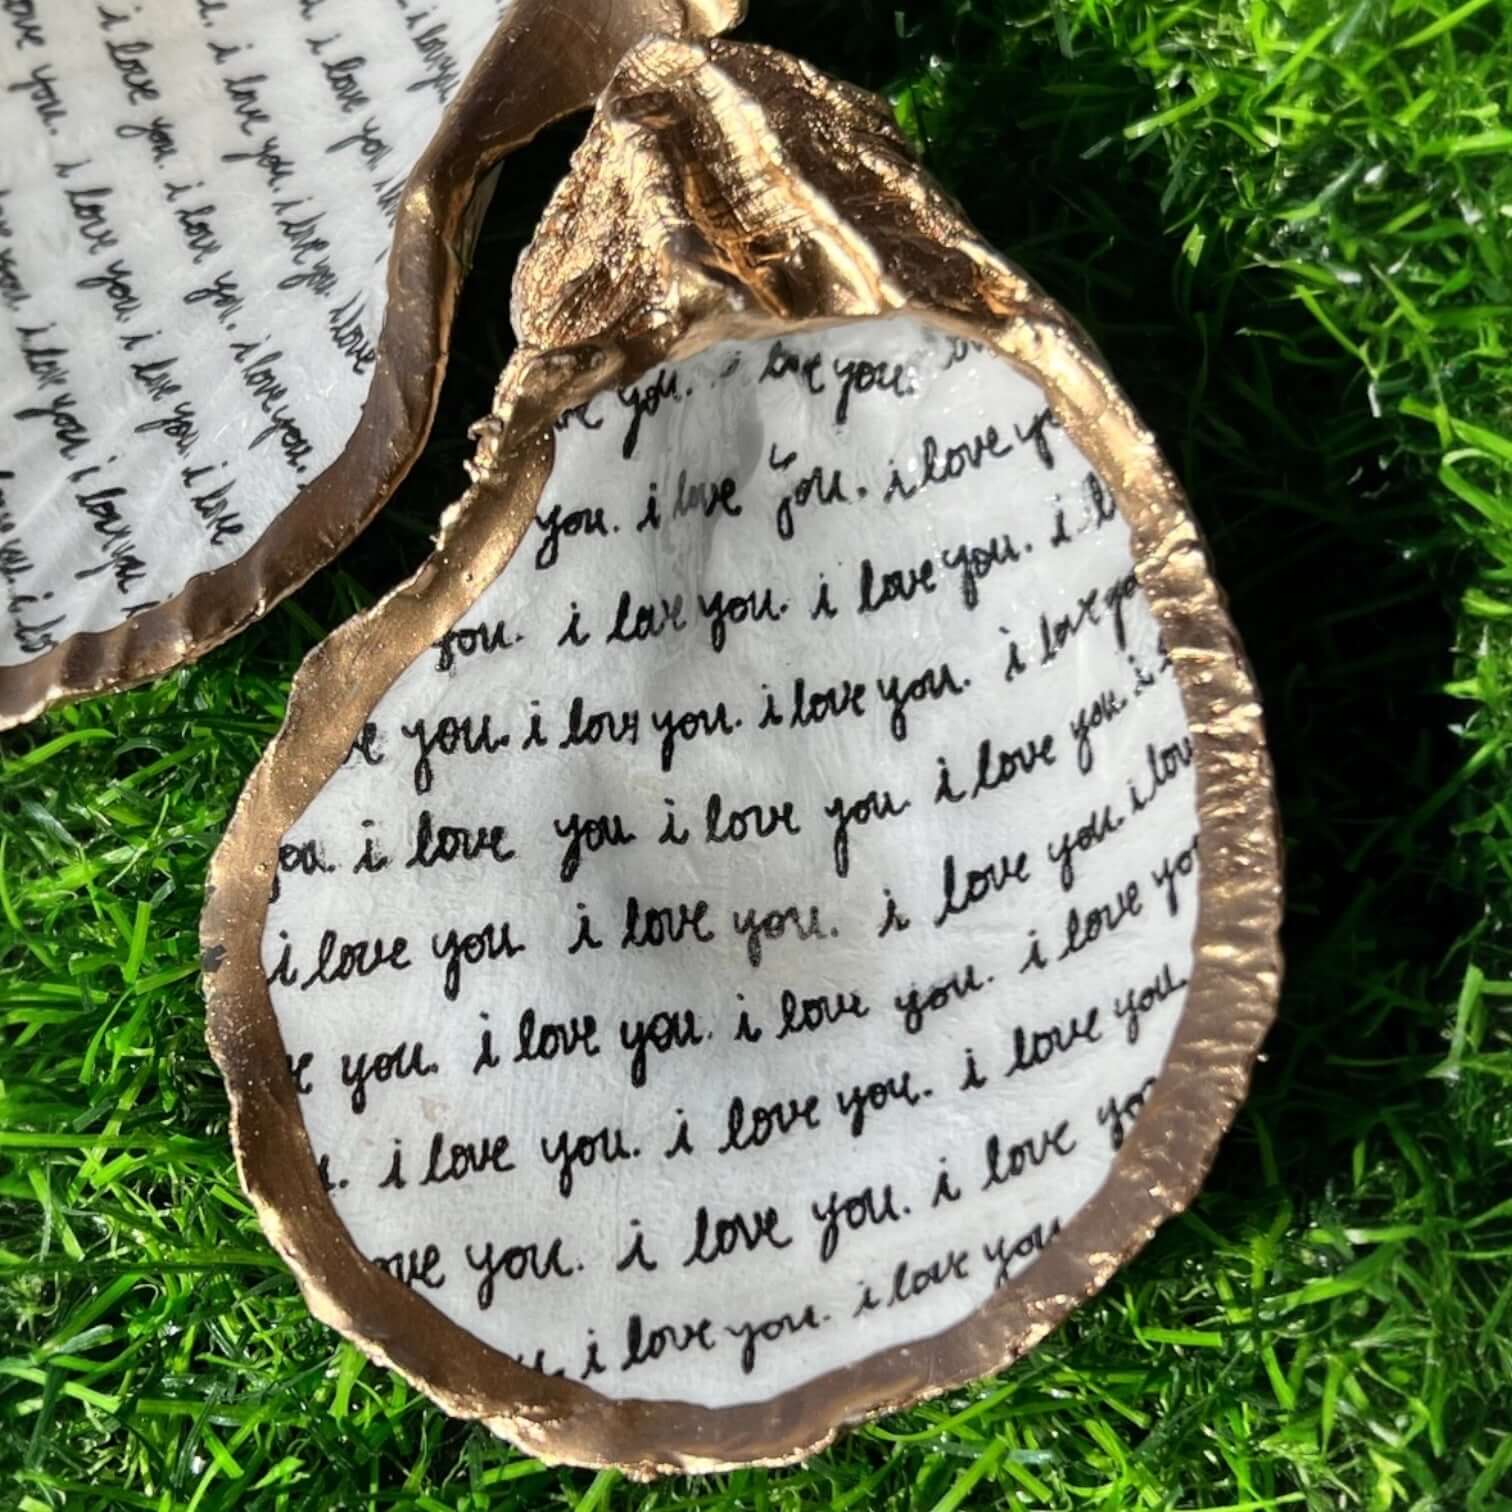 you. i love you.
you. i love you. i love
you. i love you. i love you. i
you. i love you. i love you. i love
you i love you i love you i love you. i
i love you i love you. i love you. i love
you. i love you. i love you. i love
i love you. i love you. i love you
love you. i love you. i love
i love you. i love you
i love you. i love you. i love
i love you. i love you. i love you. i love
i love you. i love you. i love you. i love
i love you i love you i love